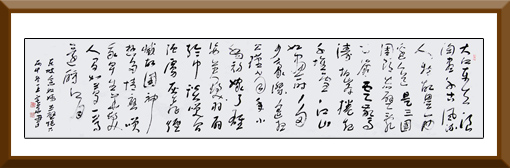 大江東去浪
淘盡千古風流
人物故壘西
邊人道是三國
周郎赤壁亂
石
濤拍岸捲起
千堆雪江山
如畫一時多
少豪傑遙想
公瑾當年小
喬初嫁了雄
姿英發羽扇
綸巾談笑間
灰飛煙
滅故國神
遊多情應笑
我早生華髮
人間如夢一尊
還酹江月
赤壁懷古
丙申